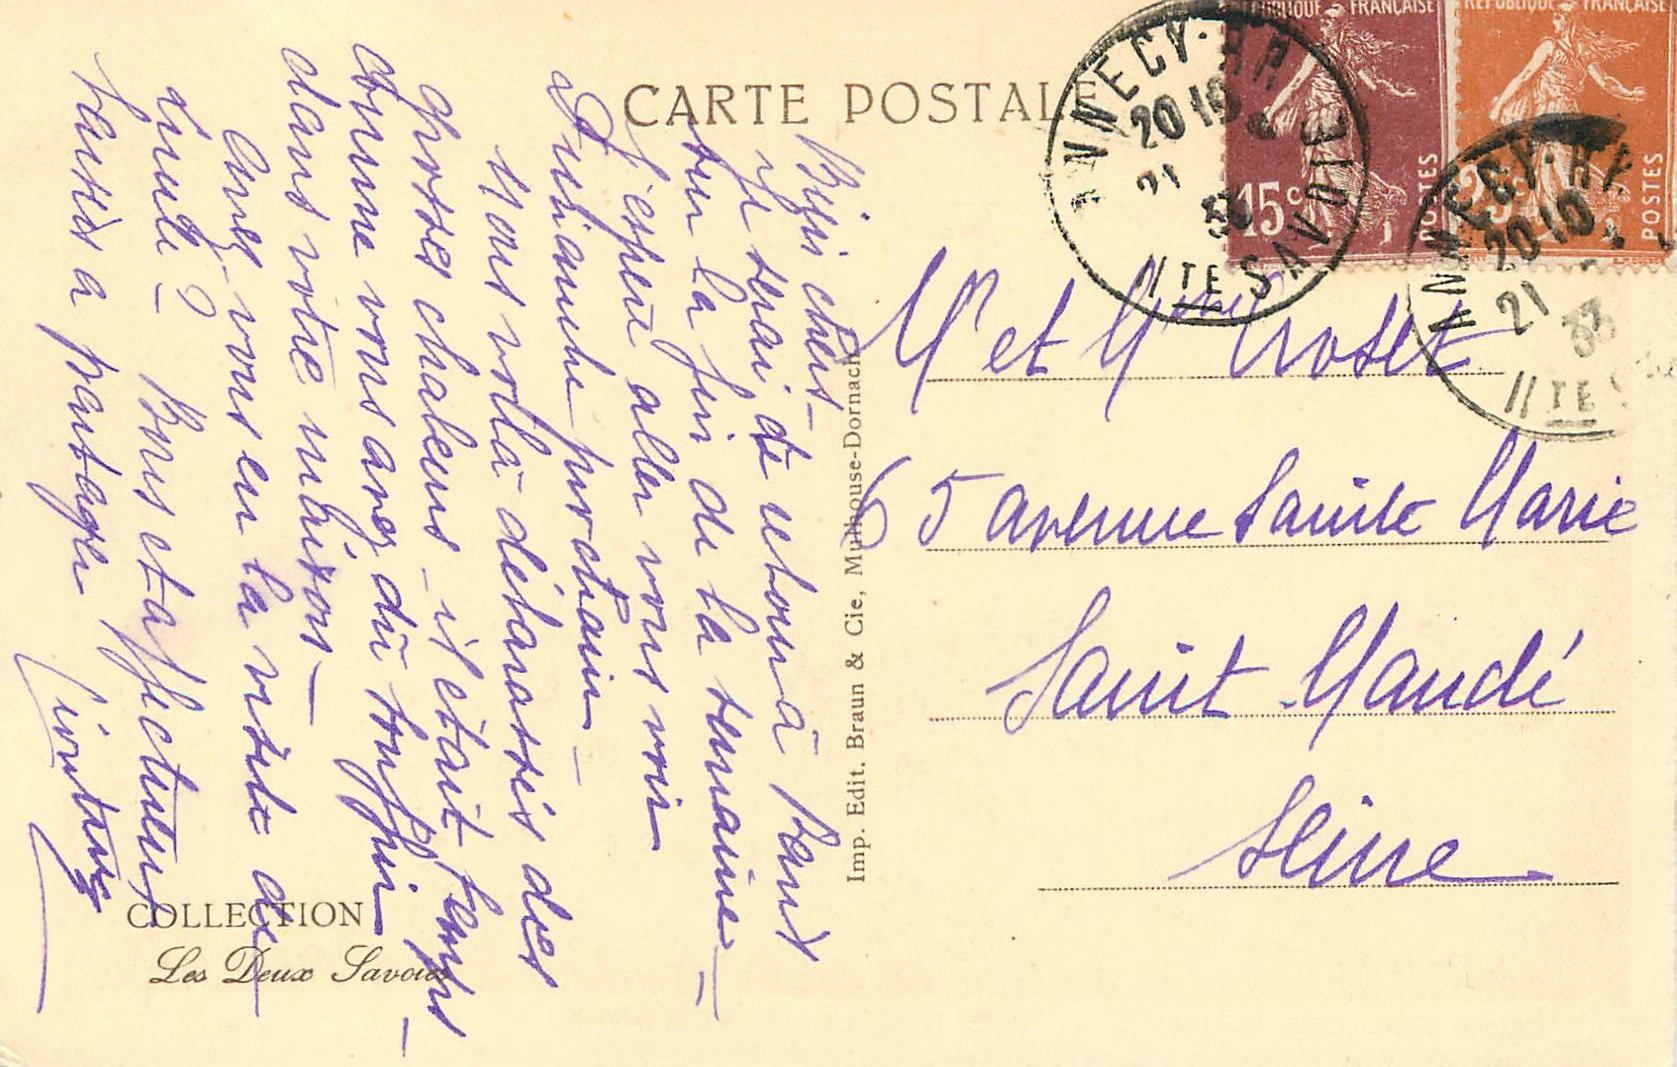 CARTE POSTALE
REPUBLIQUE FRANÇAISE
15c
POSTES
REPUBLIQUE FRANÇAISE
25c
POSTES
ANNECY. R.P.
20 10
21
33
HTE SAVOIE
ANNECY. R.P.
20·10
21
33
HTE S
Bien chers –
Je serai de retour à Paris
sur la fin de la semaine –
J'espère aller vous voir
dimanche prochain –
Nous voilà débarrassés des
grosses chaleurs – il était temps –
comme vous avez dû souffrir
dans votre maison –
Avez vous eu la visite de
? – Bons et affectueux
baisers à partager
Mr et Mme
65 avenue Sainte Marie
Saint-Mandé
Seine
Imp. Edit. Braun & Cie, Mulhouse-Dornach
COLLECTION
Les Deux Savoies